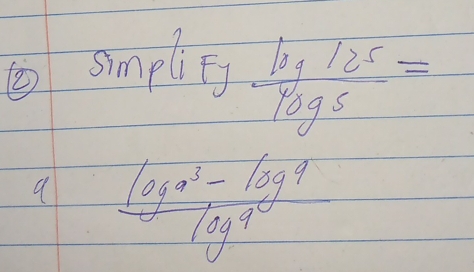 ② Simplify log 125 / log 5 =
a log a³ - log a / log a